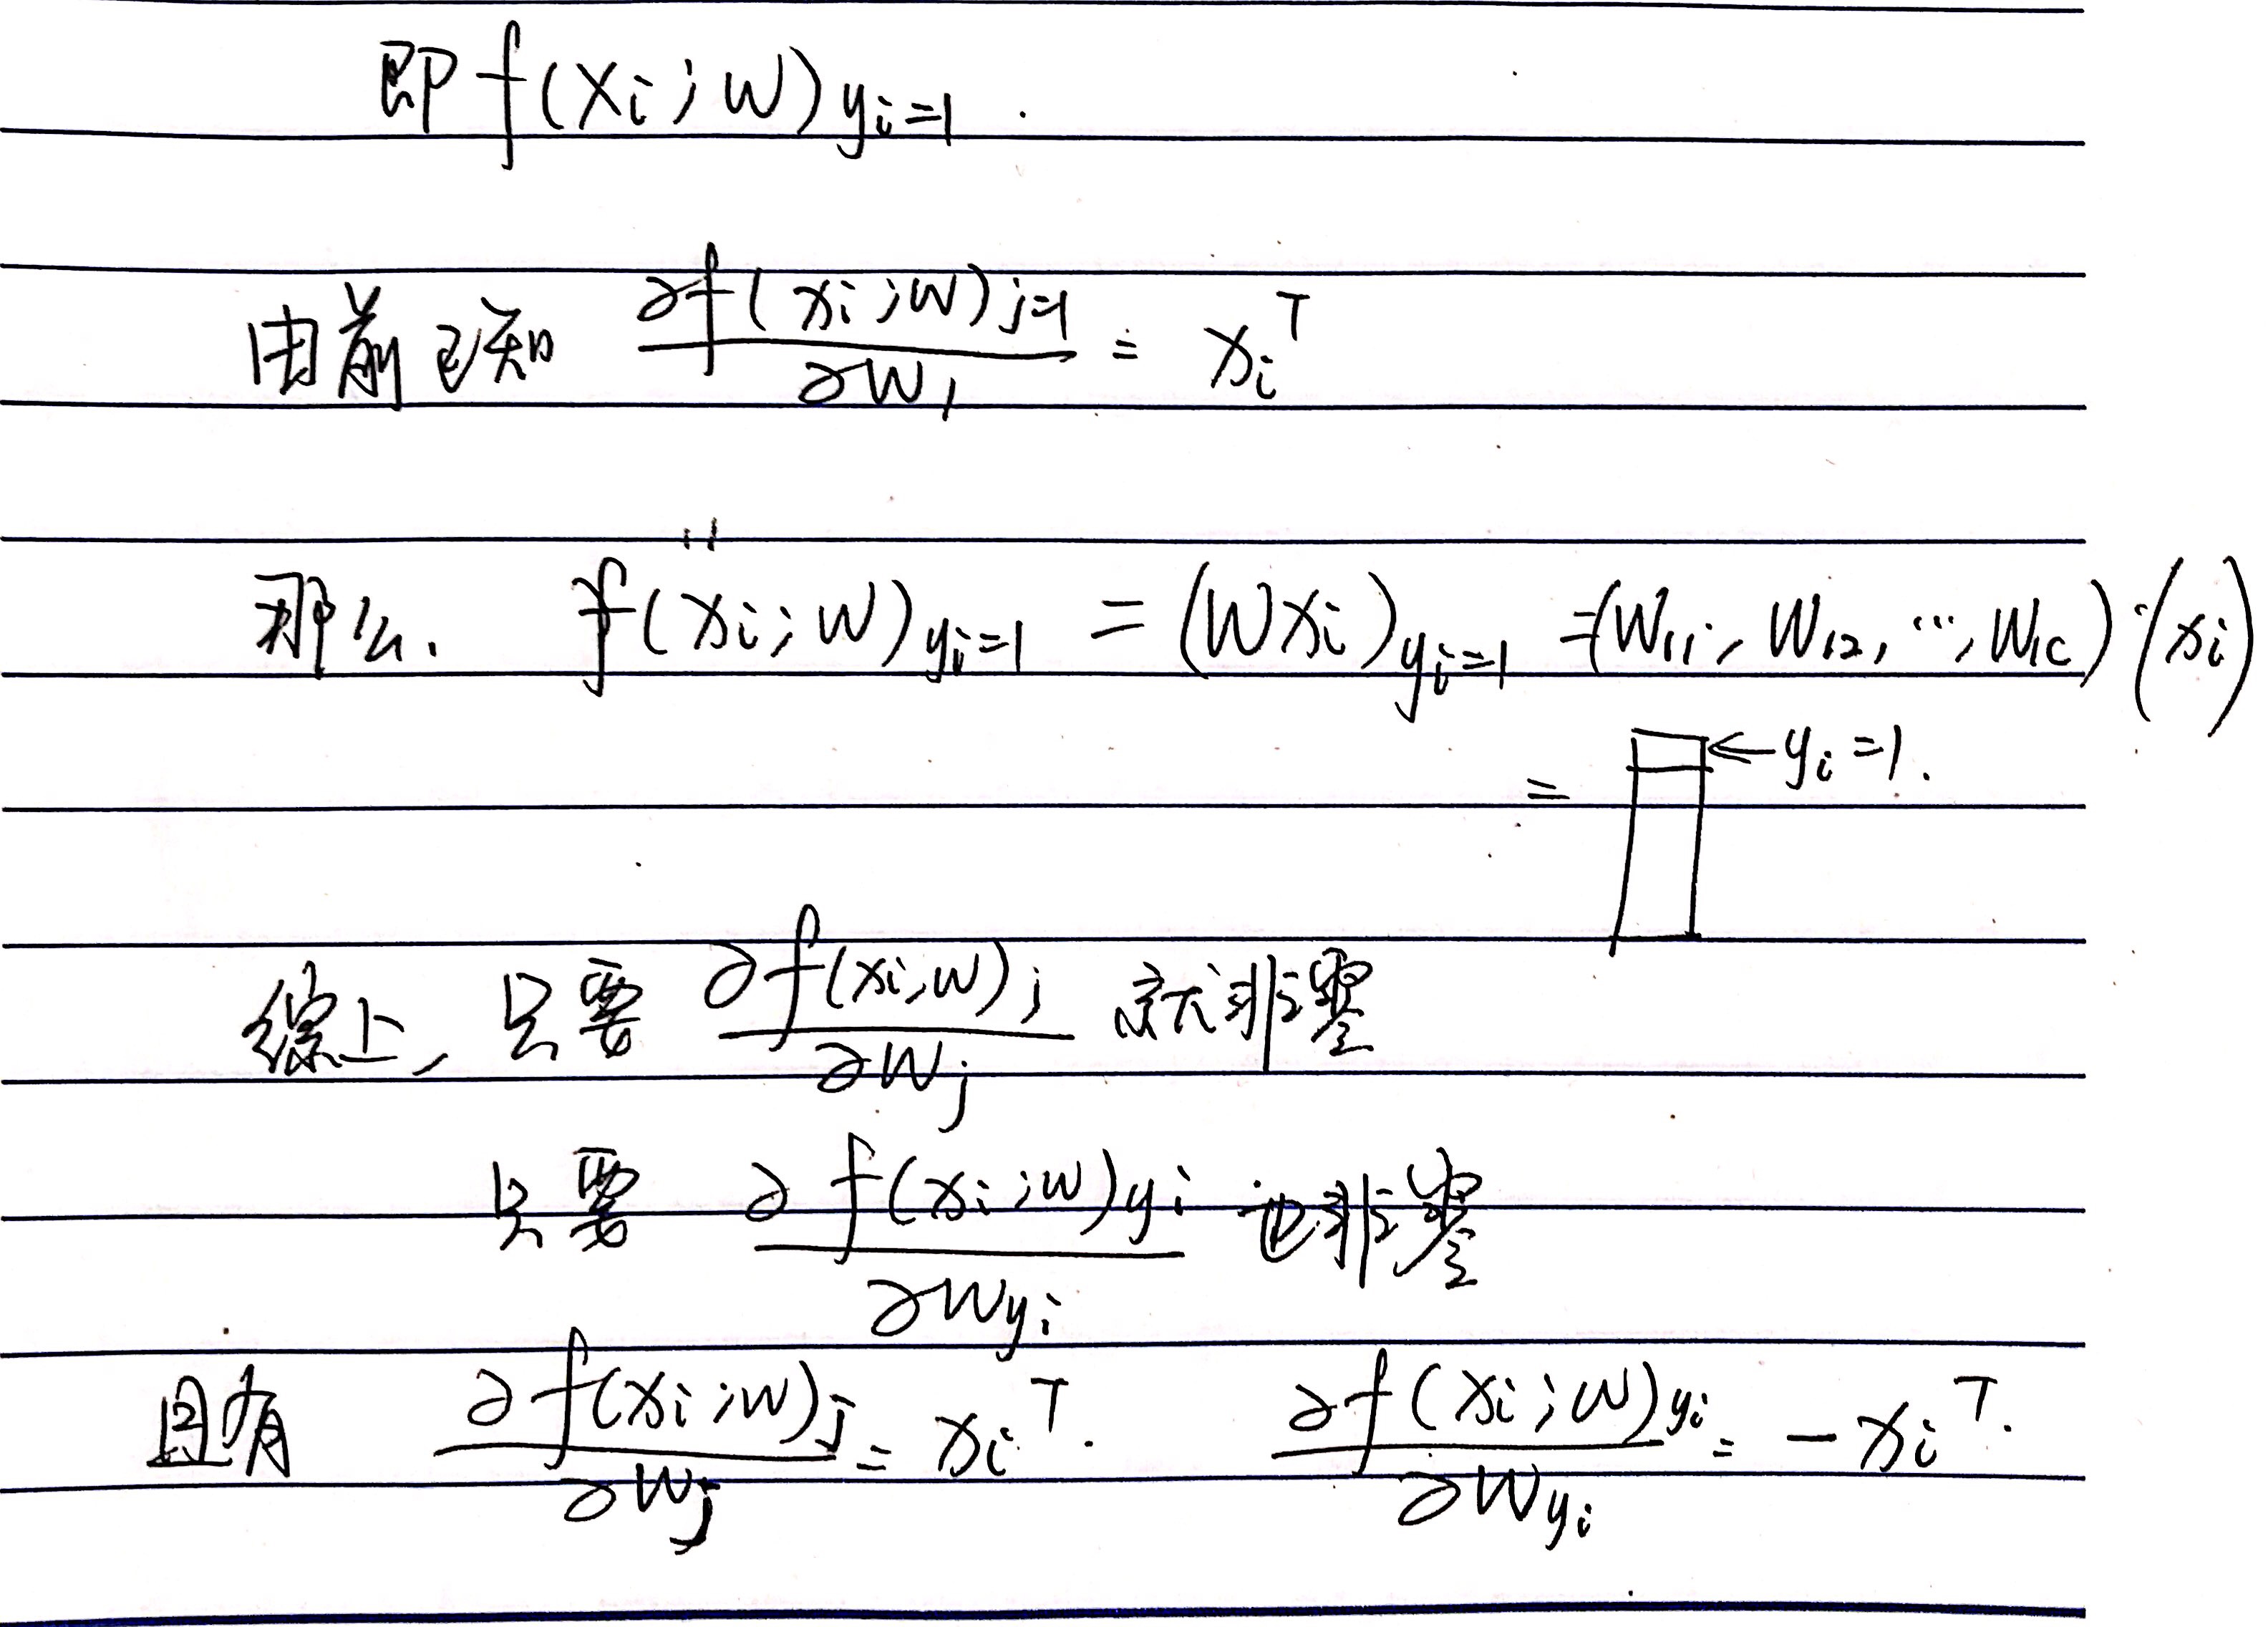 即 f(xi;W)yi=1.
由前已知 ∂f(xi;W)j=1/∂W1 = xi^T
那么. f(xi;W)yi=1 = (Wxi)yi=1 =(W11, W12, ..., W1C)·(xi)
= ←yi=1.
综上, 只要 ∂f(xi;W)j/∂Wj 就非零
只要 ∂f(xi;W)yi/∂Wyi 也非零
且有 ∂f(xi;W)j/∂Wj = xi^T. ∂f(xi;W)yi/∂Wyi = -xi^T.